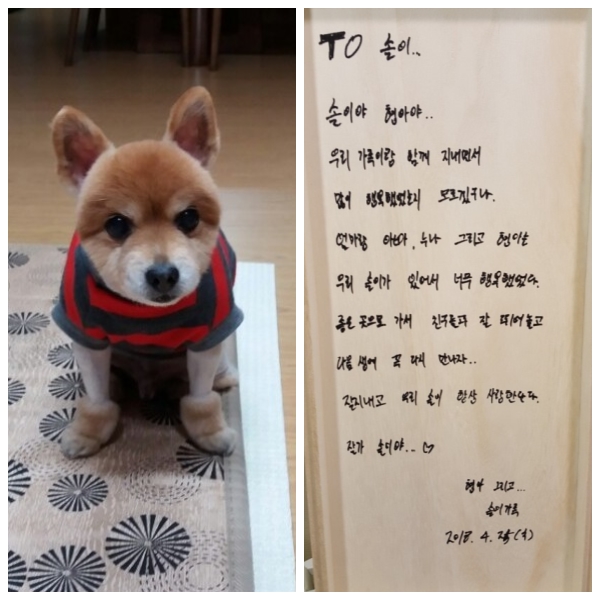 TO 솔이..
솔이야 형아야..
우리 가족이랑 함께 지내면서
많이 행복했었는지 모르겠구나.
엄마랑 아빠, 누나 그리고 형아는
우리 솔이가 있어서 너무 행복했었다.
좋은 곳으로 가서 친구들과 잘 뛰어놀고
다음 생에 꼭 다시 만나자..
잘지내고 우리 솔이 항상 사랑한단다.
잘가 솔이야.. ♡
형아 그리고...
솔이가족
2018. 4.